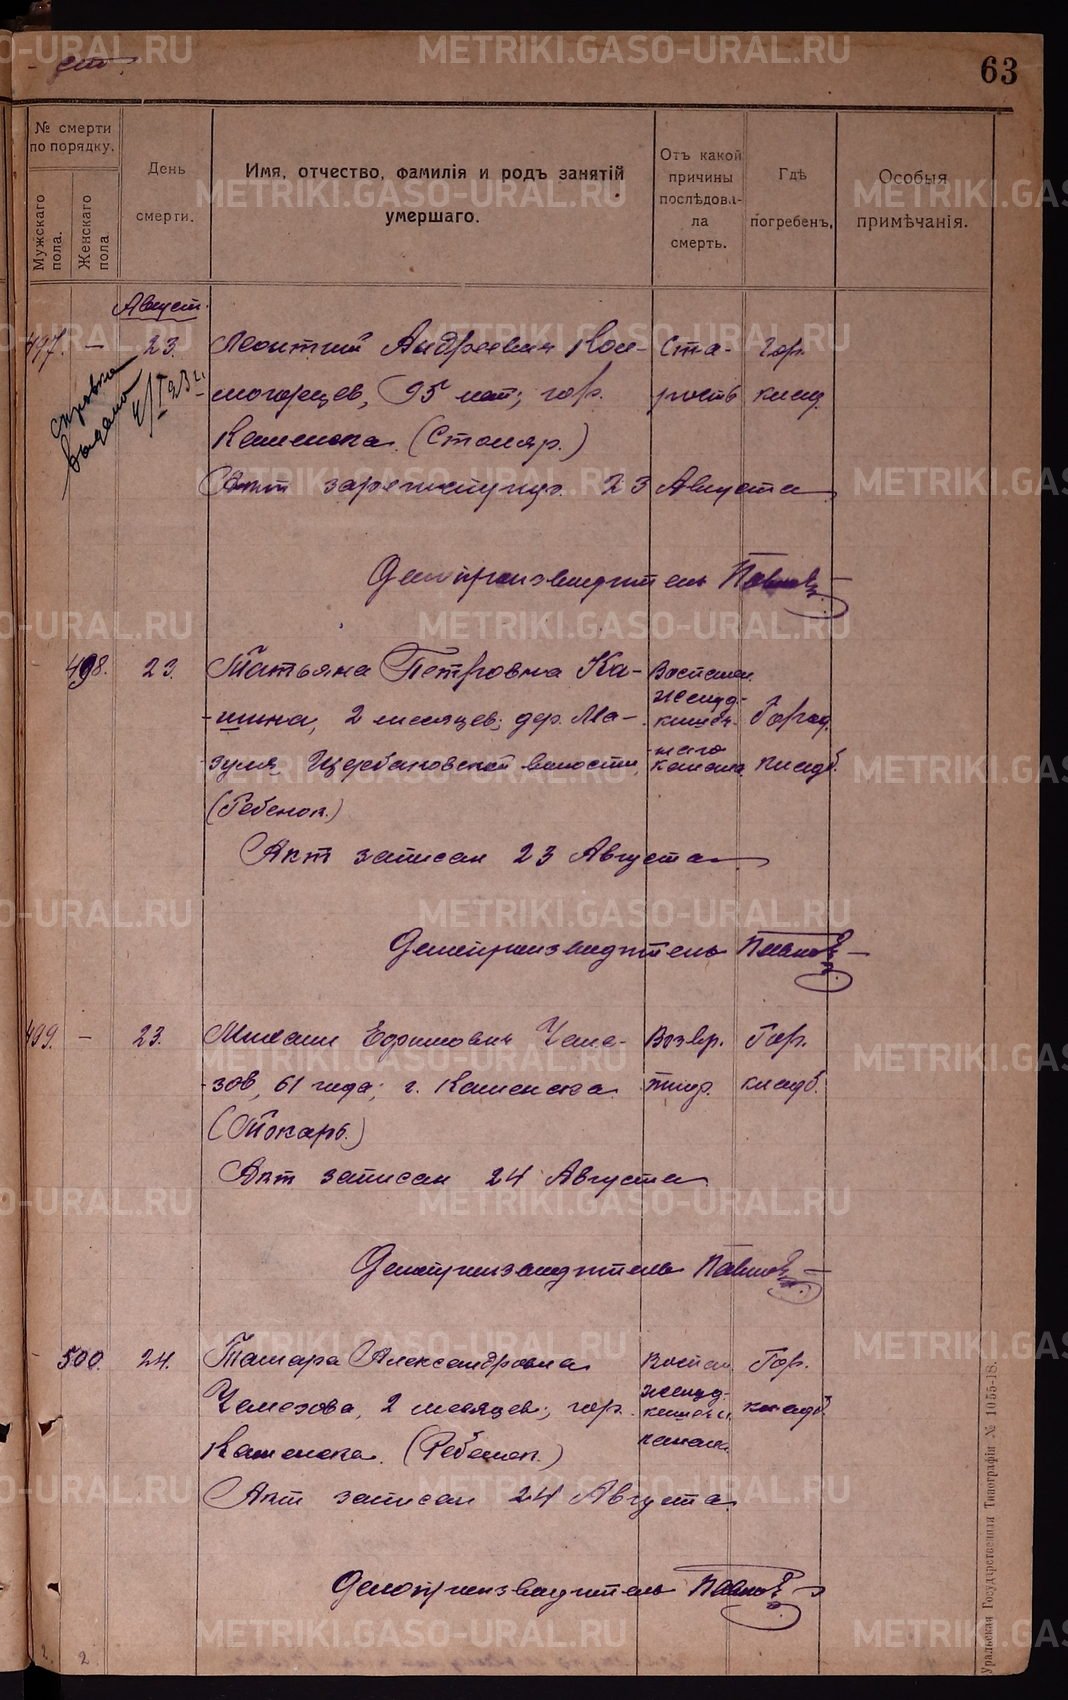 63
№ смерти
по порядку.
Мужскаго
пола.
Женскаго
пола
День
смерти.
Имя, отчество, фамилія и родъ занятій
умершаго.
Отъ какой
причины
послѣдова-
ла
смерть.
Гдѣ
погребенъ,
Особыя
примѣчанія.
Август.
497. — 23. Леонтий Андреевич Кол- Ста- Гор.
могорцев, 95 лет; гор. рость клад.
Каменска. (Столяр.)
справка
выдана
Акт 23 Августа
Делопроизводитель Павлов
498. 23. Татьяна Петровна Ка- Воспален.
желуд.-
шина, 2 месяцев; дер. Ма- кишеч- Город.
наго
зуля, Щербаковской волости, канала кладб.
(Ребенок.)
Акт записан 23 Августа
Делопроизводитель Павлов
499. — 23. Михаил Ефимович Чеме- Возвр. Гор.
зов, 61 года; г. Каменска тиф. кладб.
(Токарь.)
Акт записан 24 Августа
Делопроизводитель Павлов
500. 24. Тамара Александровна Воспал. Гор.
желуд.-
Чемезова, 2 месяцев; гор. кишечн. кладб.
Каменска. (Ребенок.) канала
Акт записан 24 Августа
Делопроизводитель Павлов
2
Уральская Государственная Типографія № 1055-18.
METRIKI.GASO-URAL.RU